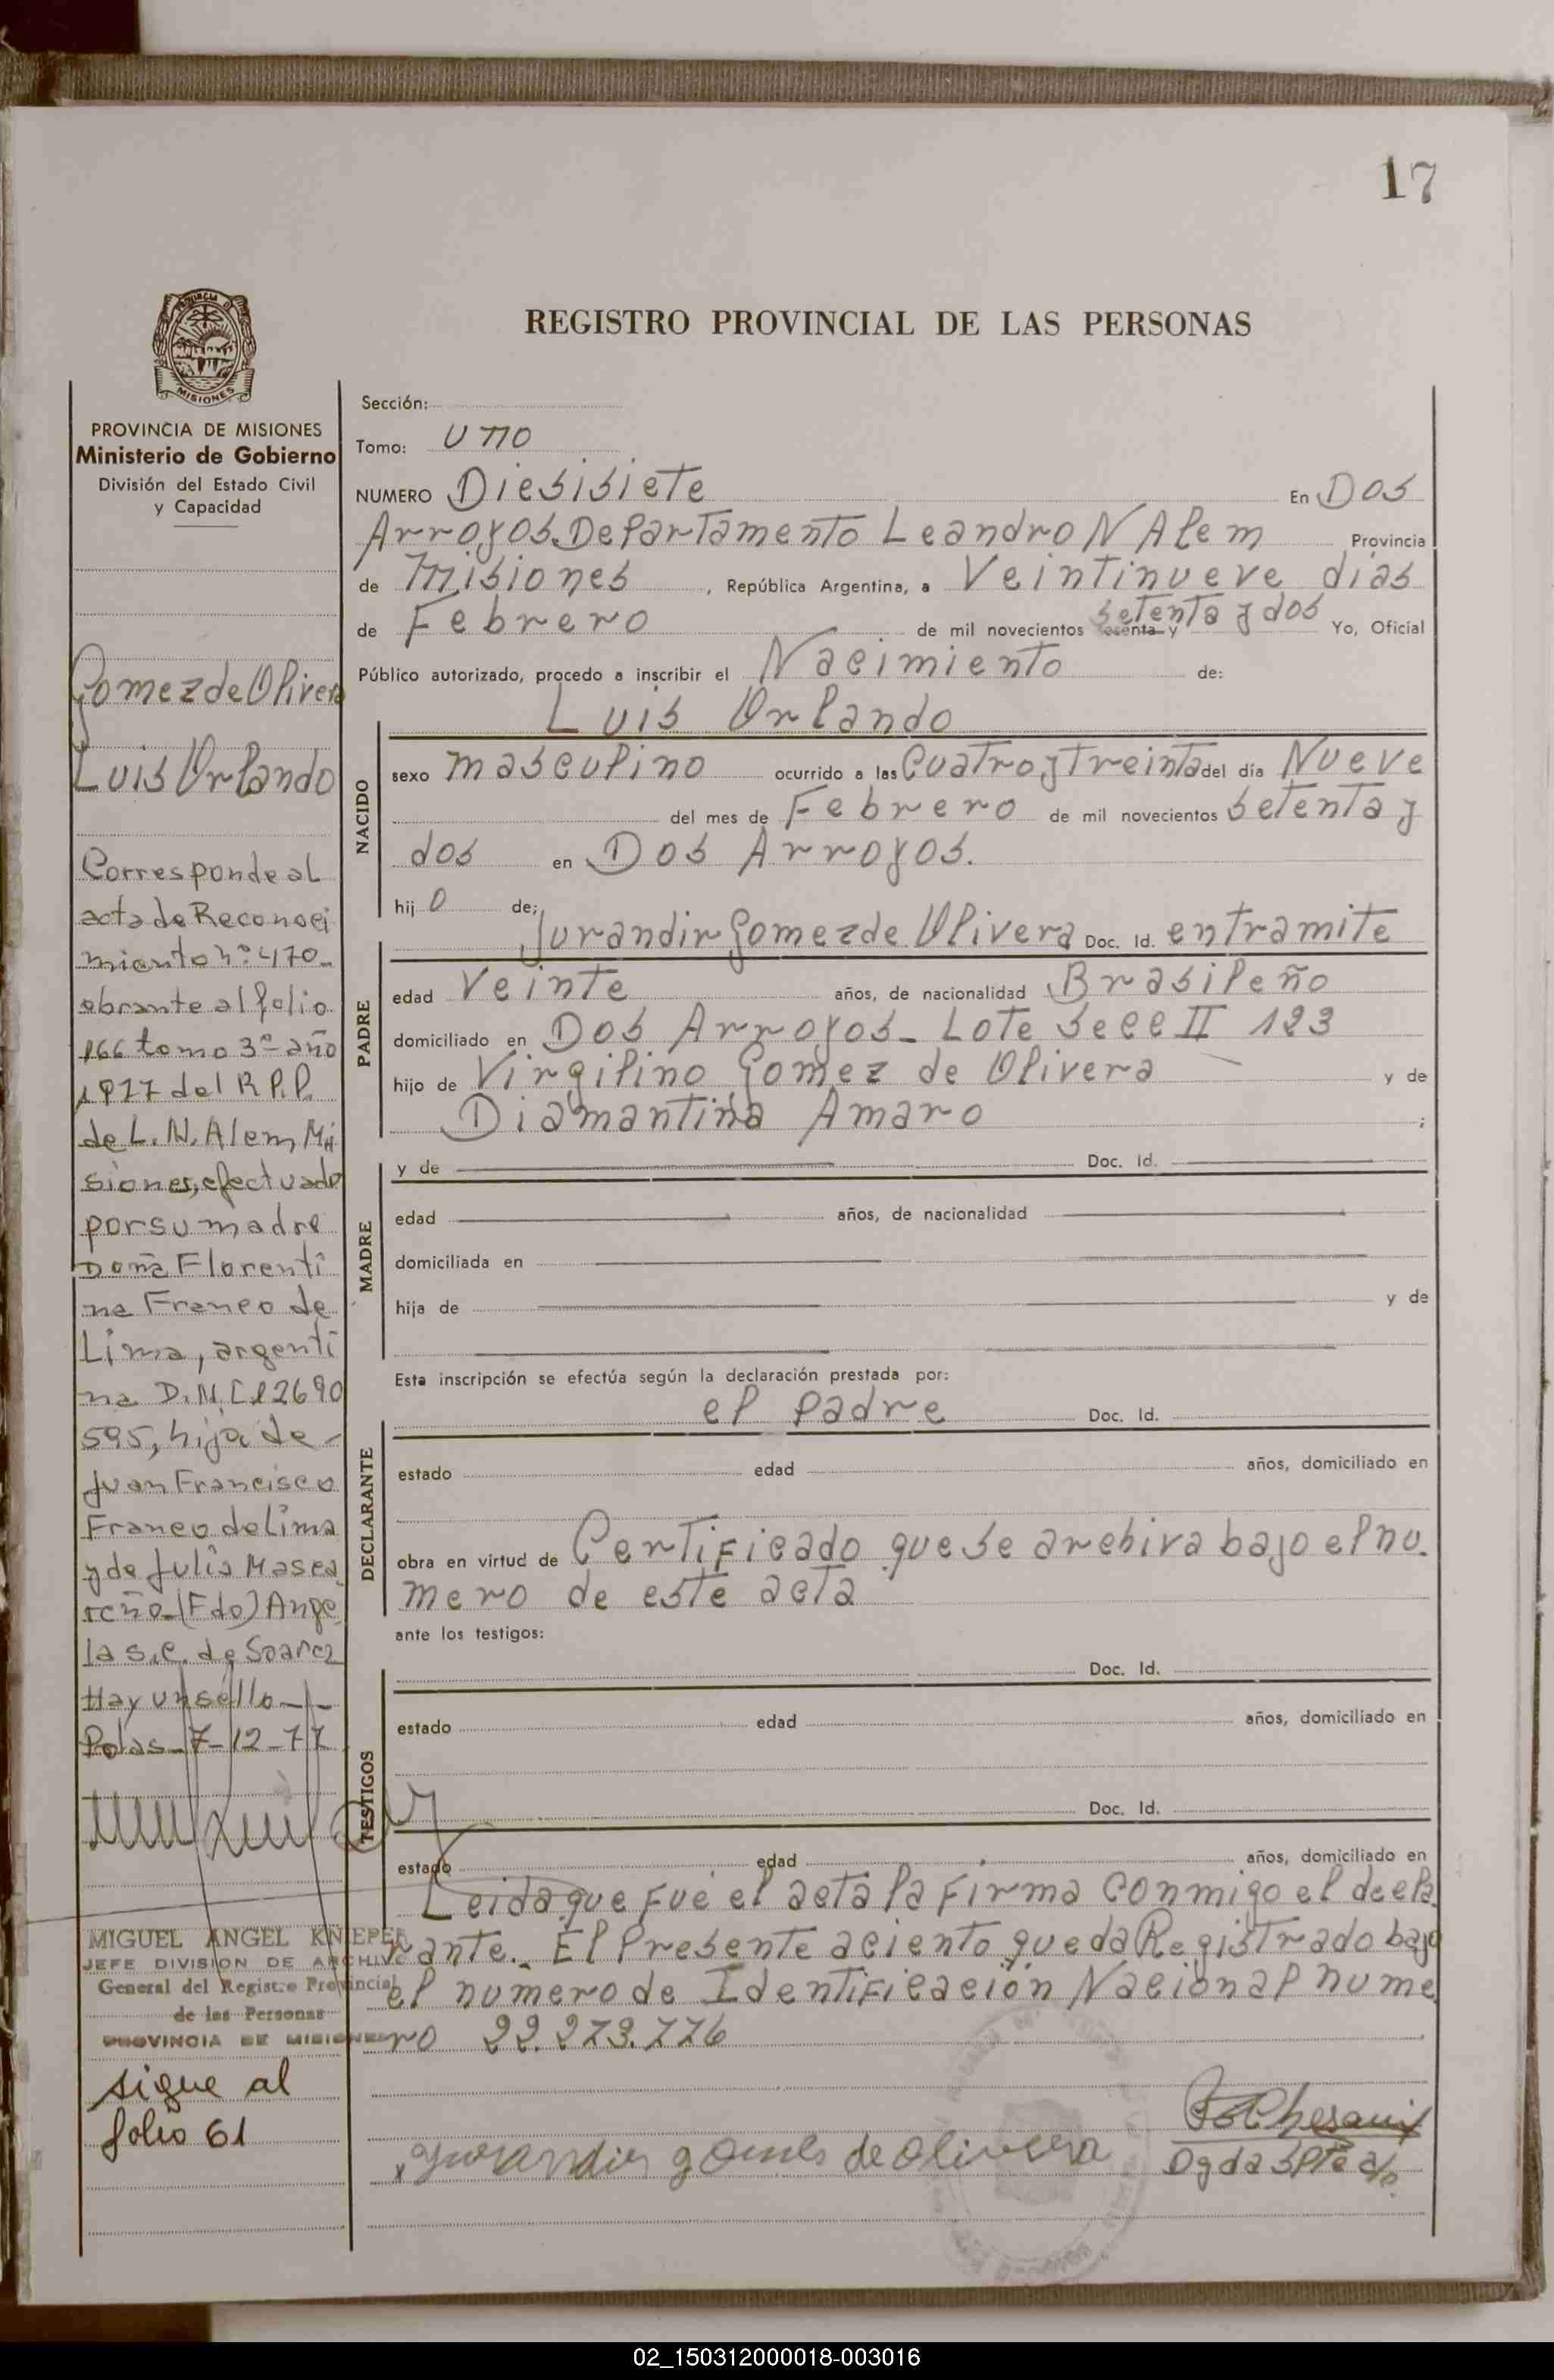 17
PROVINCIA DE MISIONES
Ministerio de Gobierno
División del Estado Civil
y Capacidad
Gomez de Olivera
Luis Orlando
Corresponde al
acta de Reconoci
miento nº: 470-
obrante al folio
166 tomo 3º año
1977 del R.P.P.
de L. N. Alem, Mi
siones, efectuado
por su madre
Doña Florenti
na Franco de
Lima, argenti
na D.N.I 12690
595, hija de -
Juan Francisco
Franco de Lima
y de Julia Masca
reño-(Fdo) Ange
la S.C. de Soarez
Hay un sello - -
Pdas-7-12-77
MIGUEL ANGEL KNIEPER
JEFE DIVISION DE ARCHIVO
General del Registro Provincial
de las Personas
PROVINCIA DE MISIONES
sigue al
folio 61
REGISTRO PROVINCIAL DE LAS PERSONAS
Sección:
Tomo: uno
NUMERO Diesisiete En Dos
Arroyos. Departamento Leandro N Alem Provincia
de Misiones, República Argentina, a Veintinueve dias
de Febrero de mil novecientos sesenta y setenta y dos Yo, Oficial
Público autorizado, procedo a inscribir el Nacimiento de:
Luis Orlando
NACIDO
sexo masculino ocurrido a las Cuatro y treinta del día Nueve
del mes de Febrero de mil novecientos setenta y
dos en Dos Arroyos.
hijo de;
Jurandir Gomez de Olivera Doc. Id. en tramite
PADRE
edad Veinte años, de nacionalidad Brasileño
domiciliado en Dos Arroyos- Lote Secc II 123
hijo de Virgilino Gomez de Olivera y de
Diamantina Amaro ;
MADRE
y de Doc. Id.
edad años, de nacionalidad
domiciliada en
hija de y de
Esta inscripción se efectúa según la declaración prestada por:
el padre Doc. Id.
DECLARANTE
estado edad años, domiciliado en
obra en virtud de Certificado que se archiva bajo el nu.
mero de este acta
ante los testigos:
Doc. Id.
TESTIGOS
estado edad años, domiciliado en
Doc. Id.
estado edad años, domiciliado en
Leida que fué el acta la firma conmigo el decla
rante. El Presente aciento queda Registrado bajo
el numero de Identificación Nacional nume
ro 22.273.776
Jurandir gomes de olivera
02_150312000018-003016